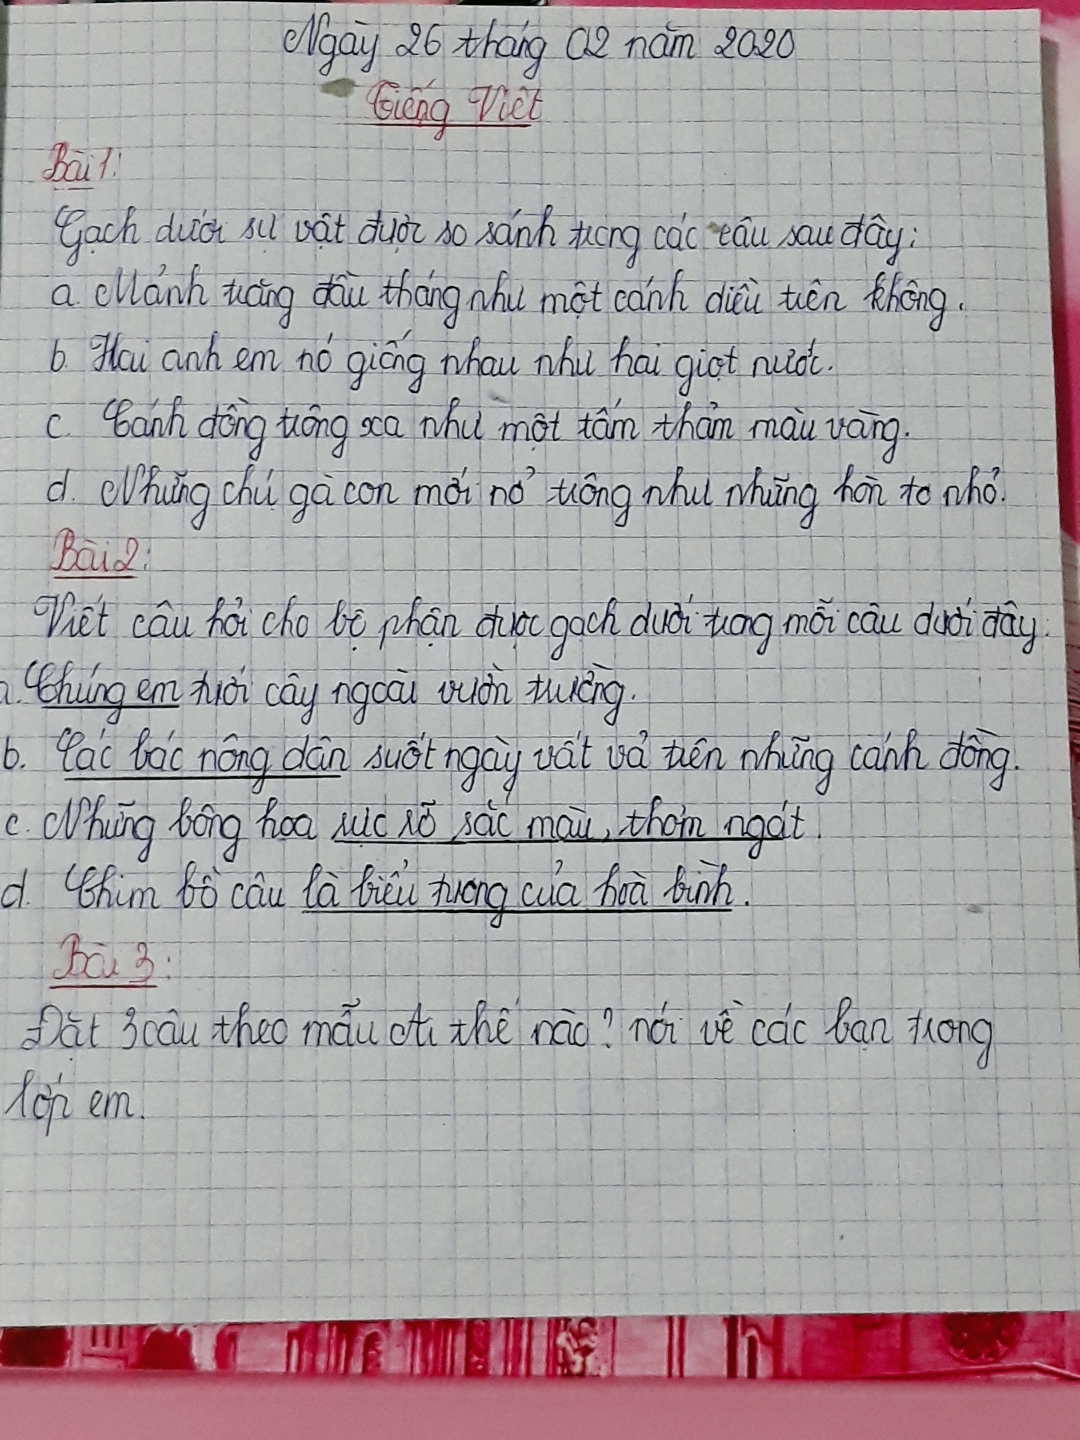 Ngày 26 tháng 02 năm 2020
Tiếng Việt
Bài 1:
Gạch dưới sự vật được so sánh trong các câu sau đây:
a. Mảnh trăng đầu tháng như một cánh diều trên không.
b. Hai anh em nó giống nhau như hai giọt nước.
c. Cánh đồng trông xa như một tấm thảm màu vàng.
d. Những chú gà con mới nở trông như những hòn tơ nhỏ.
Bài 2:
Viết câu hỏi cho bộ phận được gạch dưới trong mỗi câu dưới đây:
a. Chúng em tưới cây ngoài vườn trường.
b. Các bác nông dân suốt ngày vất vả trên những cánh đồng.
c. Những bông hoa rực rỡ sắc màu, thơm ngát.
d. Chim bồ câu là biểu tượng của hoà bình.
Bài 3:
Đặt 3 câu theo mẫu Ai thế nào? nói về các bạn trong
lớp em.